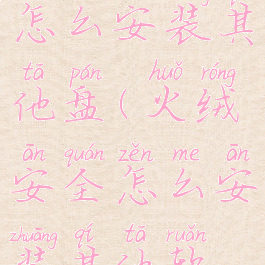 怎么安装其
tā pán huǒ róng
他盘(火绒
ān quán zěn me ān
安全怎么安
zhuāng qí tā ruǎn
装其他软